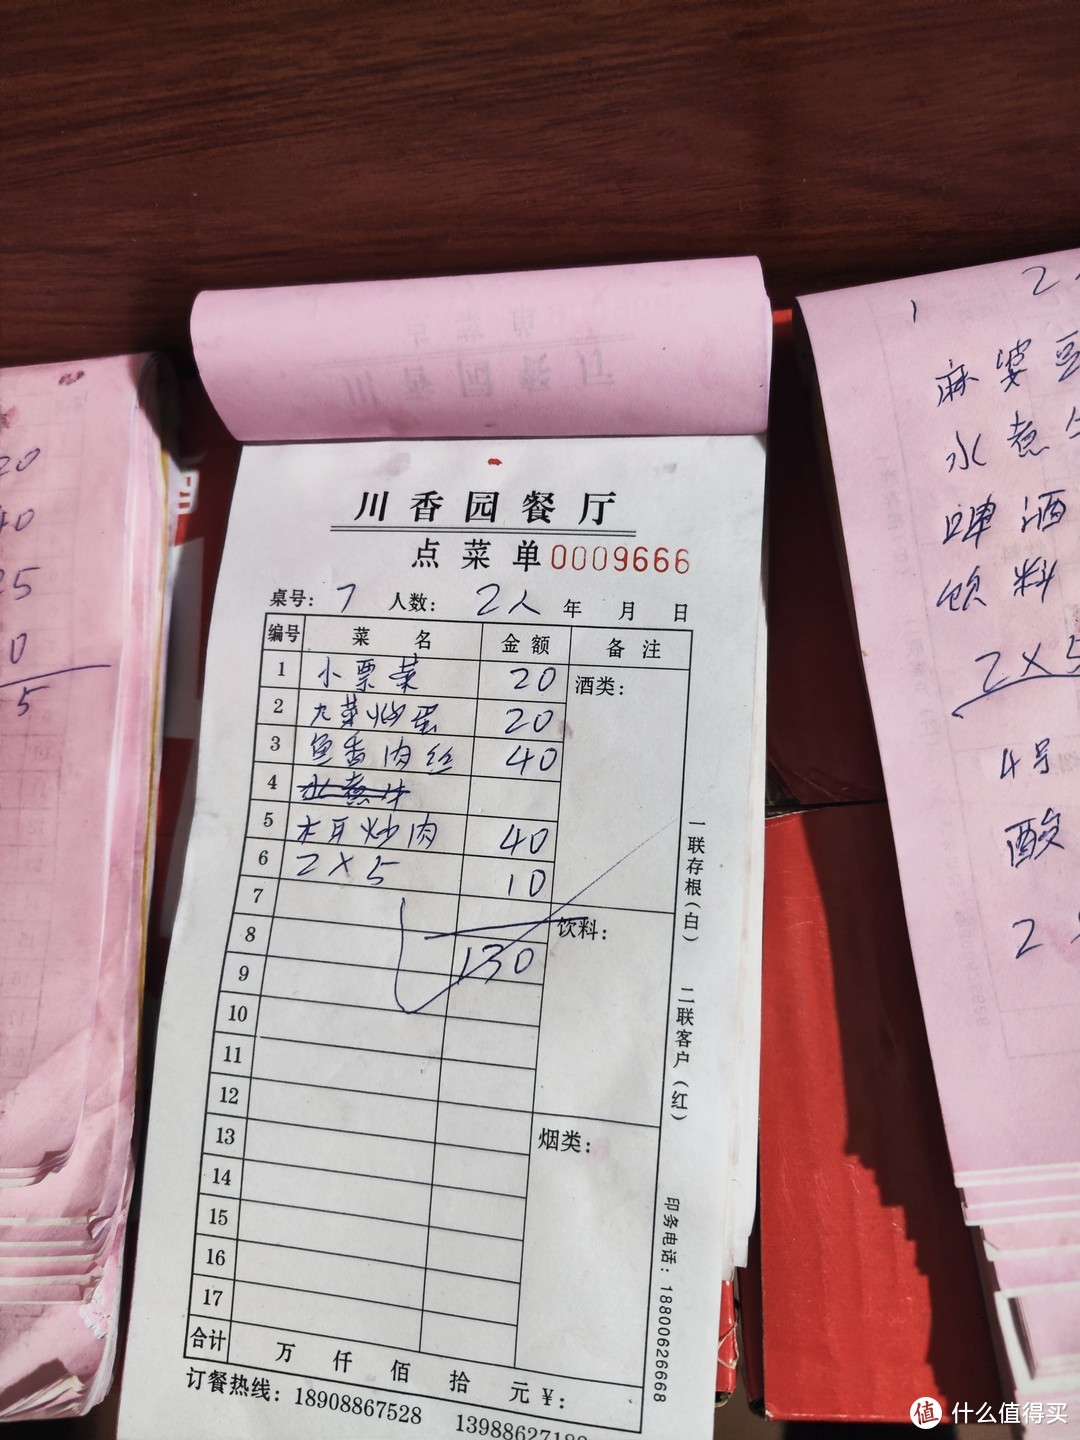 川香园餐厅
点菜单 0009666
桌号: 7 人数: 2人 年 月 日
编号 菜名 金额 备注
1 小票菜 20 酒类:
2 九菜炒蛋 20
3 鱼香肉丝 40
4 水煮牛
5 木耳炒肉 40
6 2×5 10
7 饮料:
8 130
9
10
11
12
13 烟类:
14
15
16
17
合计 万 仟 佰 拾 元 ¥:
订餐热线: 18908867528 13988627188
一联存根(白) 二联客户(红)
印务电话: 18800626668
20
40
25
0
5
1 2
麻婆豆
水煮牛
啤酒
饮料
2×5
4号
酸
2
值 什么值得买